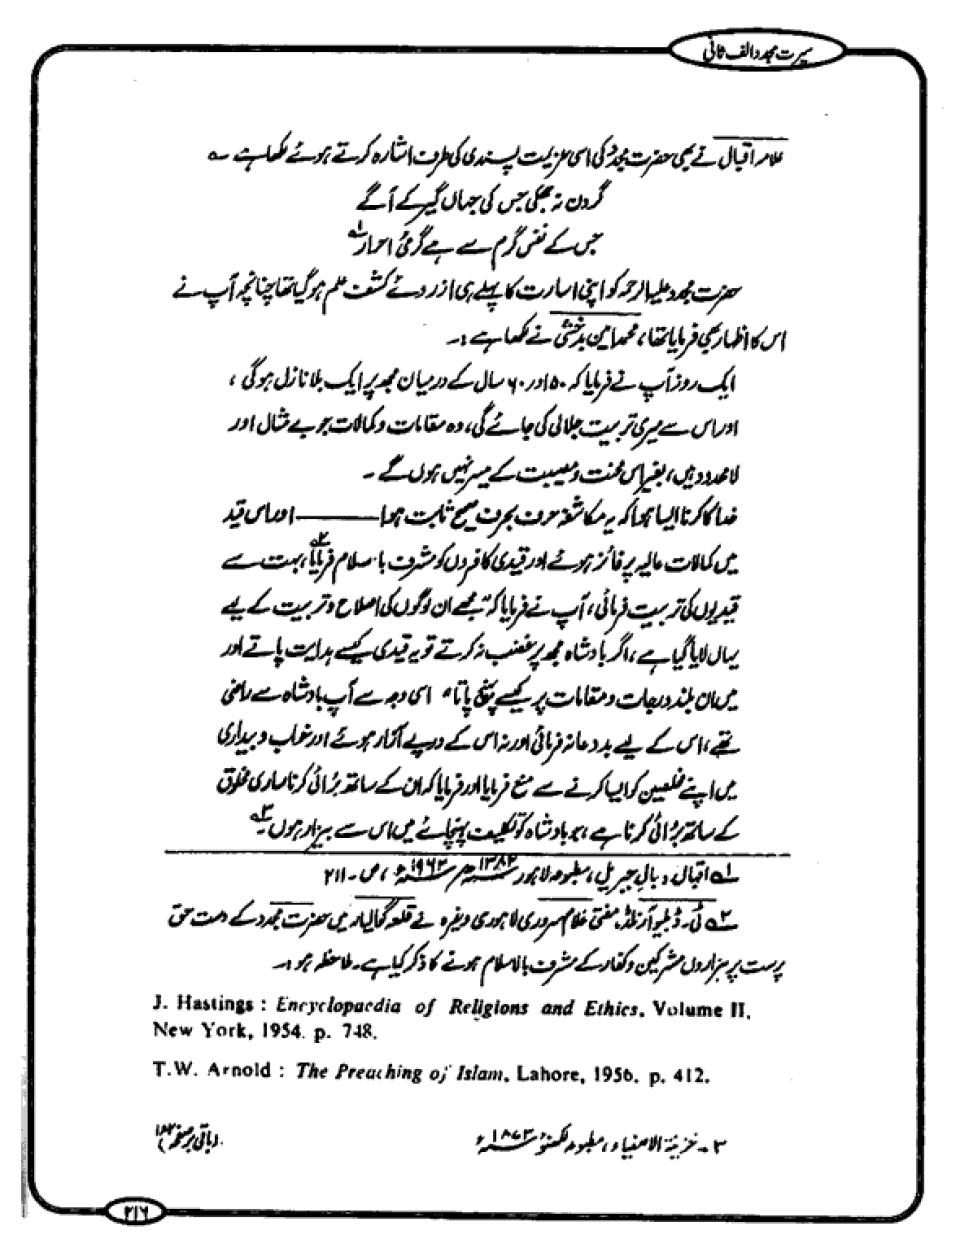 سیرت مجدد الف ثانی
علامہ اقبال نے بھی حضرت مجدد کی اسی عزیمت پسندی کی طرف اشارہ کرتے ہوئے لکھا ہے ؎
گردن نہ جھکی جس کی جہاں گیر کے آگے
جس کے نفس گرم سے ہے گرمئ احرار ۱؎
حضرت مجدد علیہ الرحمہ کو اپنی اسارت کا پہلے ہی از روئے کشف علم ہو گیا تھا چنانچہ آپ نے
اس کا اظہار بھی فرمایا تھا، محمد امین بدخشی نے لکھا ہے :۔
ایک روز آپ نے فرمایا کہ ۵۰ اور ۶۰ سال کے درمیان مجھ پر ایک بلا نازل ہوگی ،
اور اس سے میری تربیت جلالی کی جائے گی، وہ مقامات و کمالات جو بے مثال اور
لا محدود ہیں، بغیر اس محنت و مصیبت کے میسر نہیں ہوں گے ۔
خدا کا کرنا ایسا ہوا کہ یہ مکاشفہ حرف بحرف صحیح ثابت ہوا ——— اور اس قید
میں کمالات عالیہ پر فائز ہوئے اور قیدی کافروں کو مشرف با سلام فرمایا ۲؎، بہت سے
قیدیوں کی تربیت فرمائی، آپ نے فرمایا کہ "مجھے ان لوگوں کی اصلاح و تربیت کے لیے
یہاں لایا گیا ہے، اگر بادشاہ مجھ پر غضب نہ کرتے تو یہ قیدی کیسے ہدایت پاتے اور
میں ان بلند درجات و مقامات پر کیسے پہنچ پاتا" اسی وجہ سے آپ بادشاہ سے راضی
تھے، اس کے لیے بددعا نہ فرمائی اور نہ اس کے درپے آزار ہوئے اور خواب و بیداری
میں اپنے مخلصین کو ایسا کرنے سے منع فرمایا اور فرمایا کہ ان کے ساتھ برائی کرنا ساری مخلوق
کے ساتھ برائی کرنا ہے، جو بادشاہ کو تکلیف پہنچائے میں اس سے بیزار ہوں ۳؎
۱؎ اقبال، بال جبریل، مطبوعہ لاہور ۱۳۸۲ھ م ۱۹۶۲ء، ص ۔ ۲۱۱
۲؎ ٹی۔ ڈبلیو آرنلڈ، مفتی غلام سروری لاہوری وغیرہ نے قلعہ گوالیار میں حضرت مجدد کے دست حق
پرست پر ہزاروں مشرکین و کفار کے مشرف بالاسلام ہونے کا ذکر کیا ہے۔ ملاحظہ ہو :۔
J. Hastings : Encyclopaedia of Religions and Ethics. Volume II,
New York, 1954. p. 748.
T.W. Arnold : The Preaching of Islam, Lahore, 1956. p. 412.
۳۔ خزینۃ الاصفیاء، مطبوعہ لکھنؤ ۱۸۷۳ء
(باقی بر صفحہ
۲۱۶